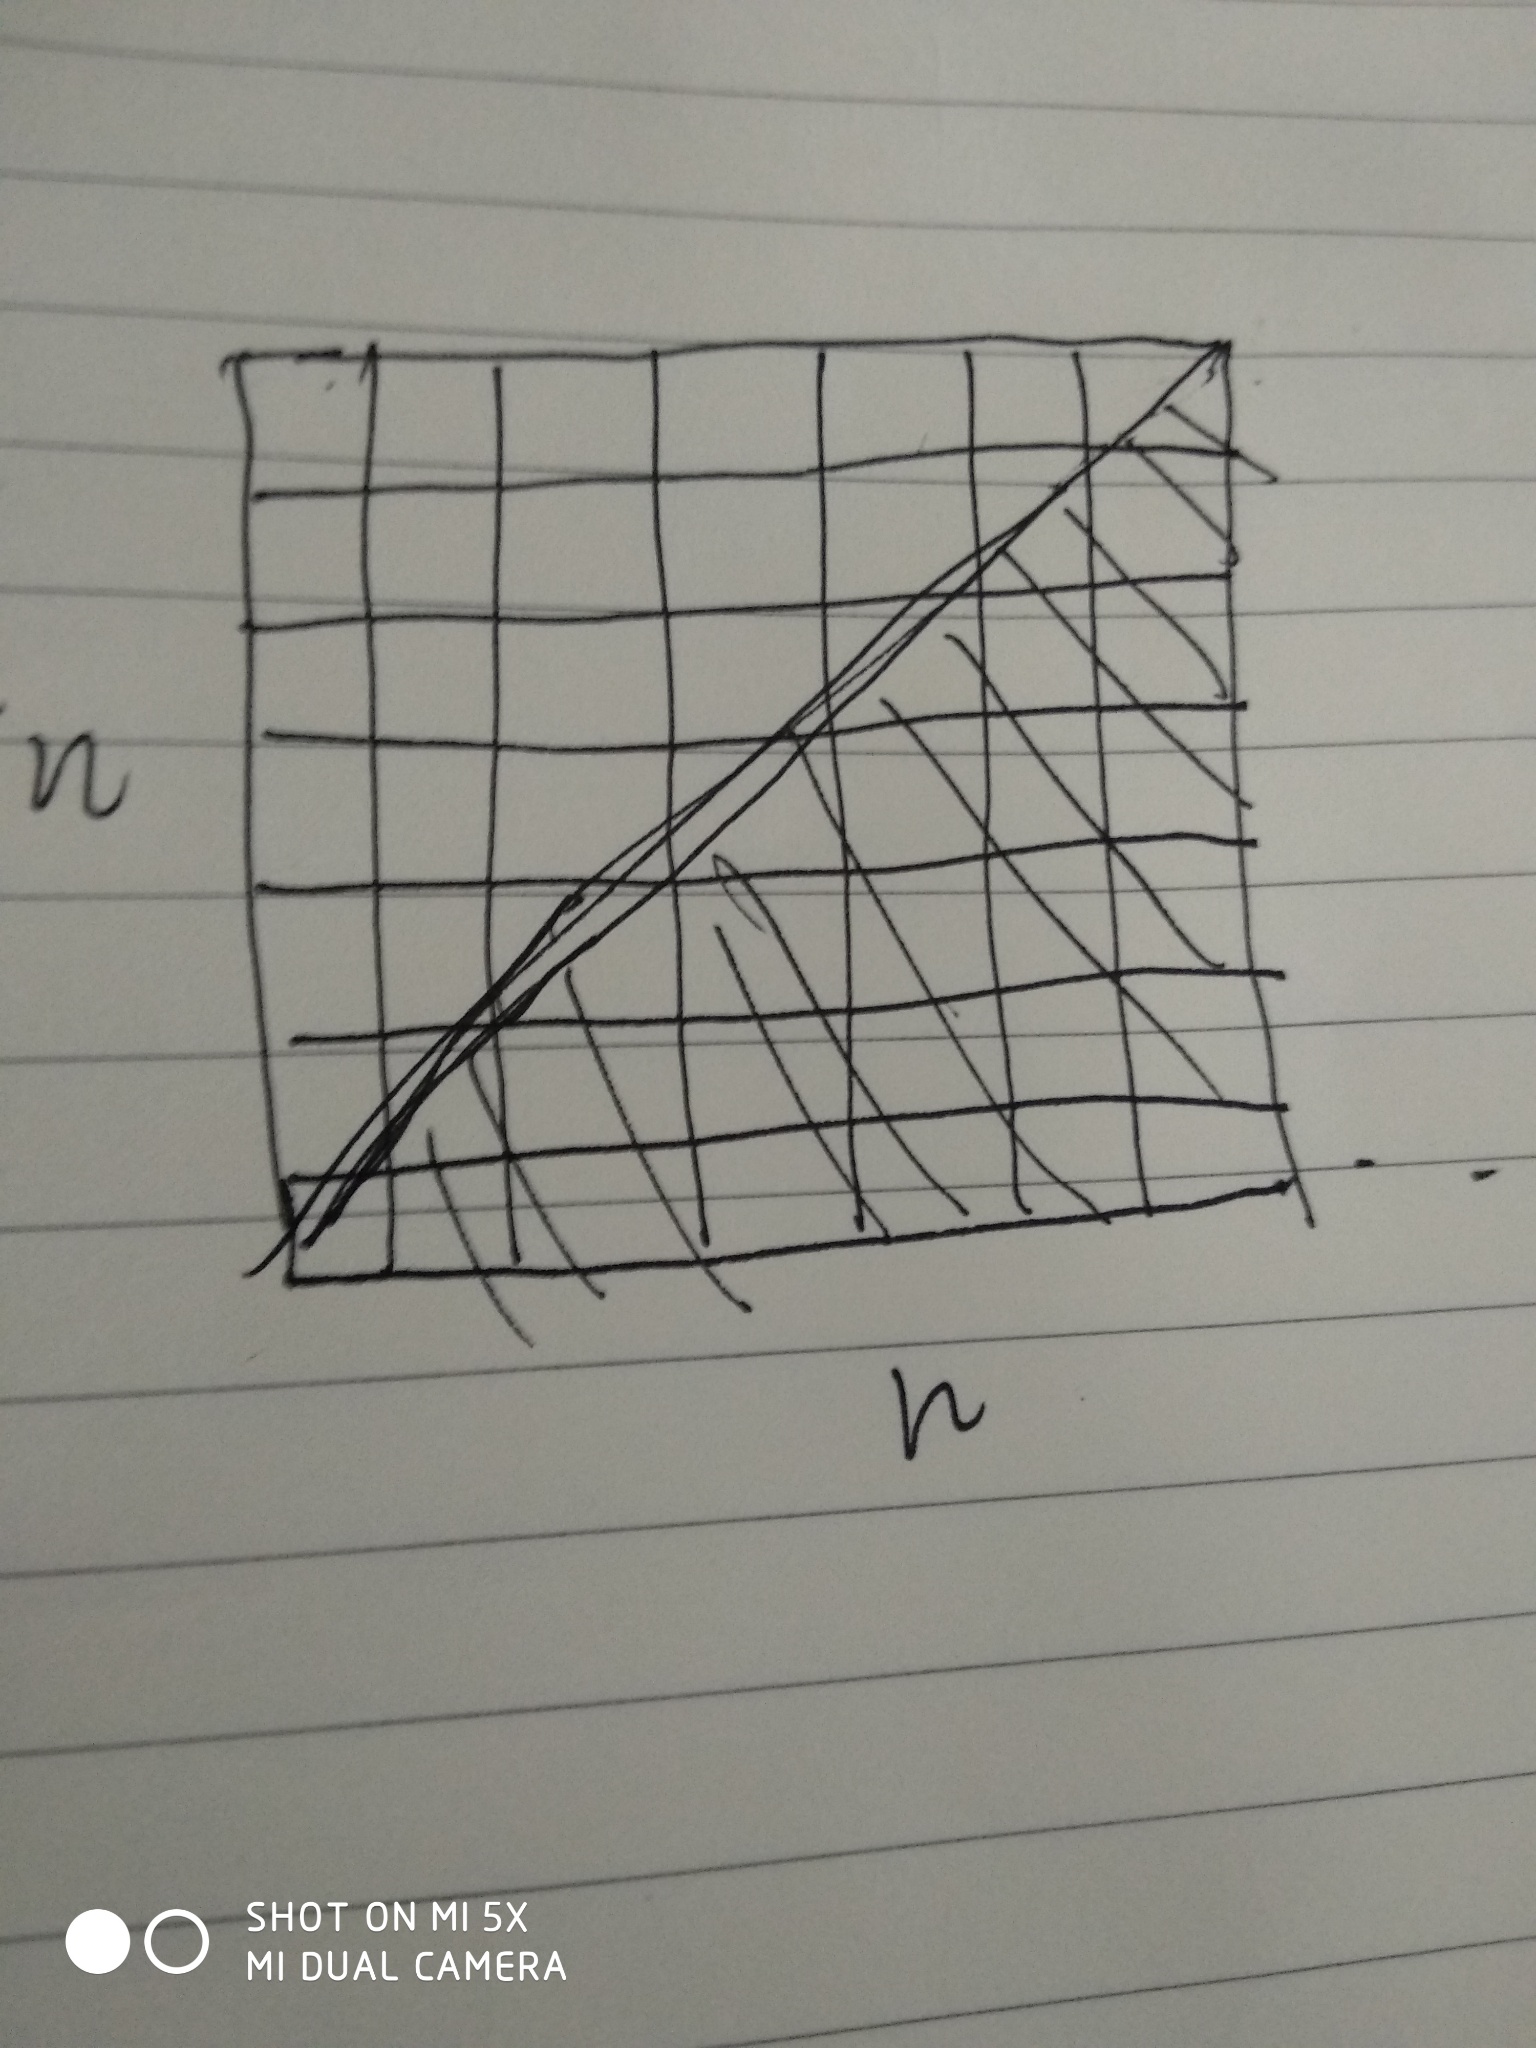 n
n
SHOT ON MI 5X
MI DUAL CAMERA